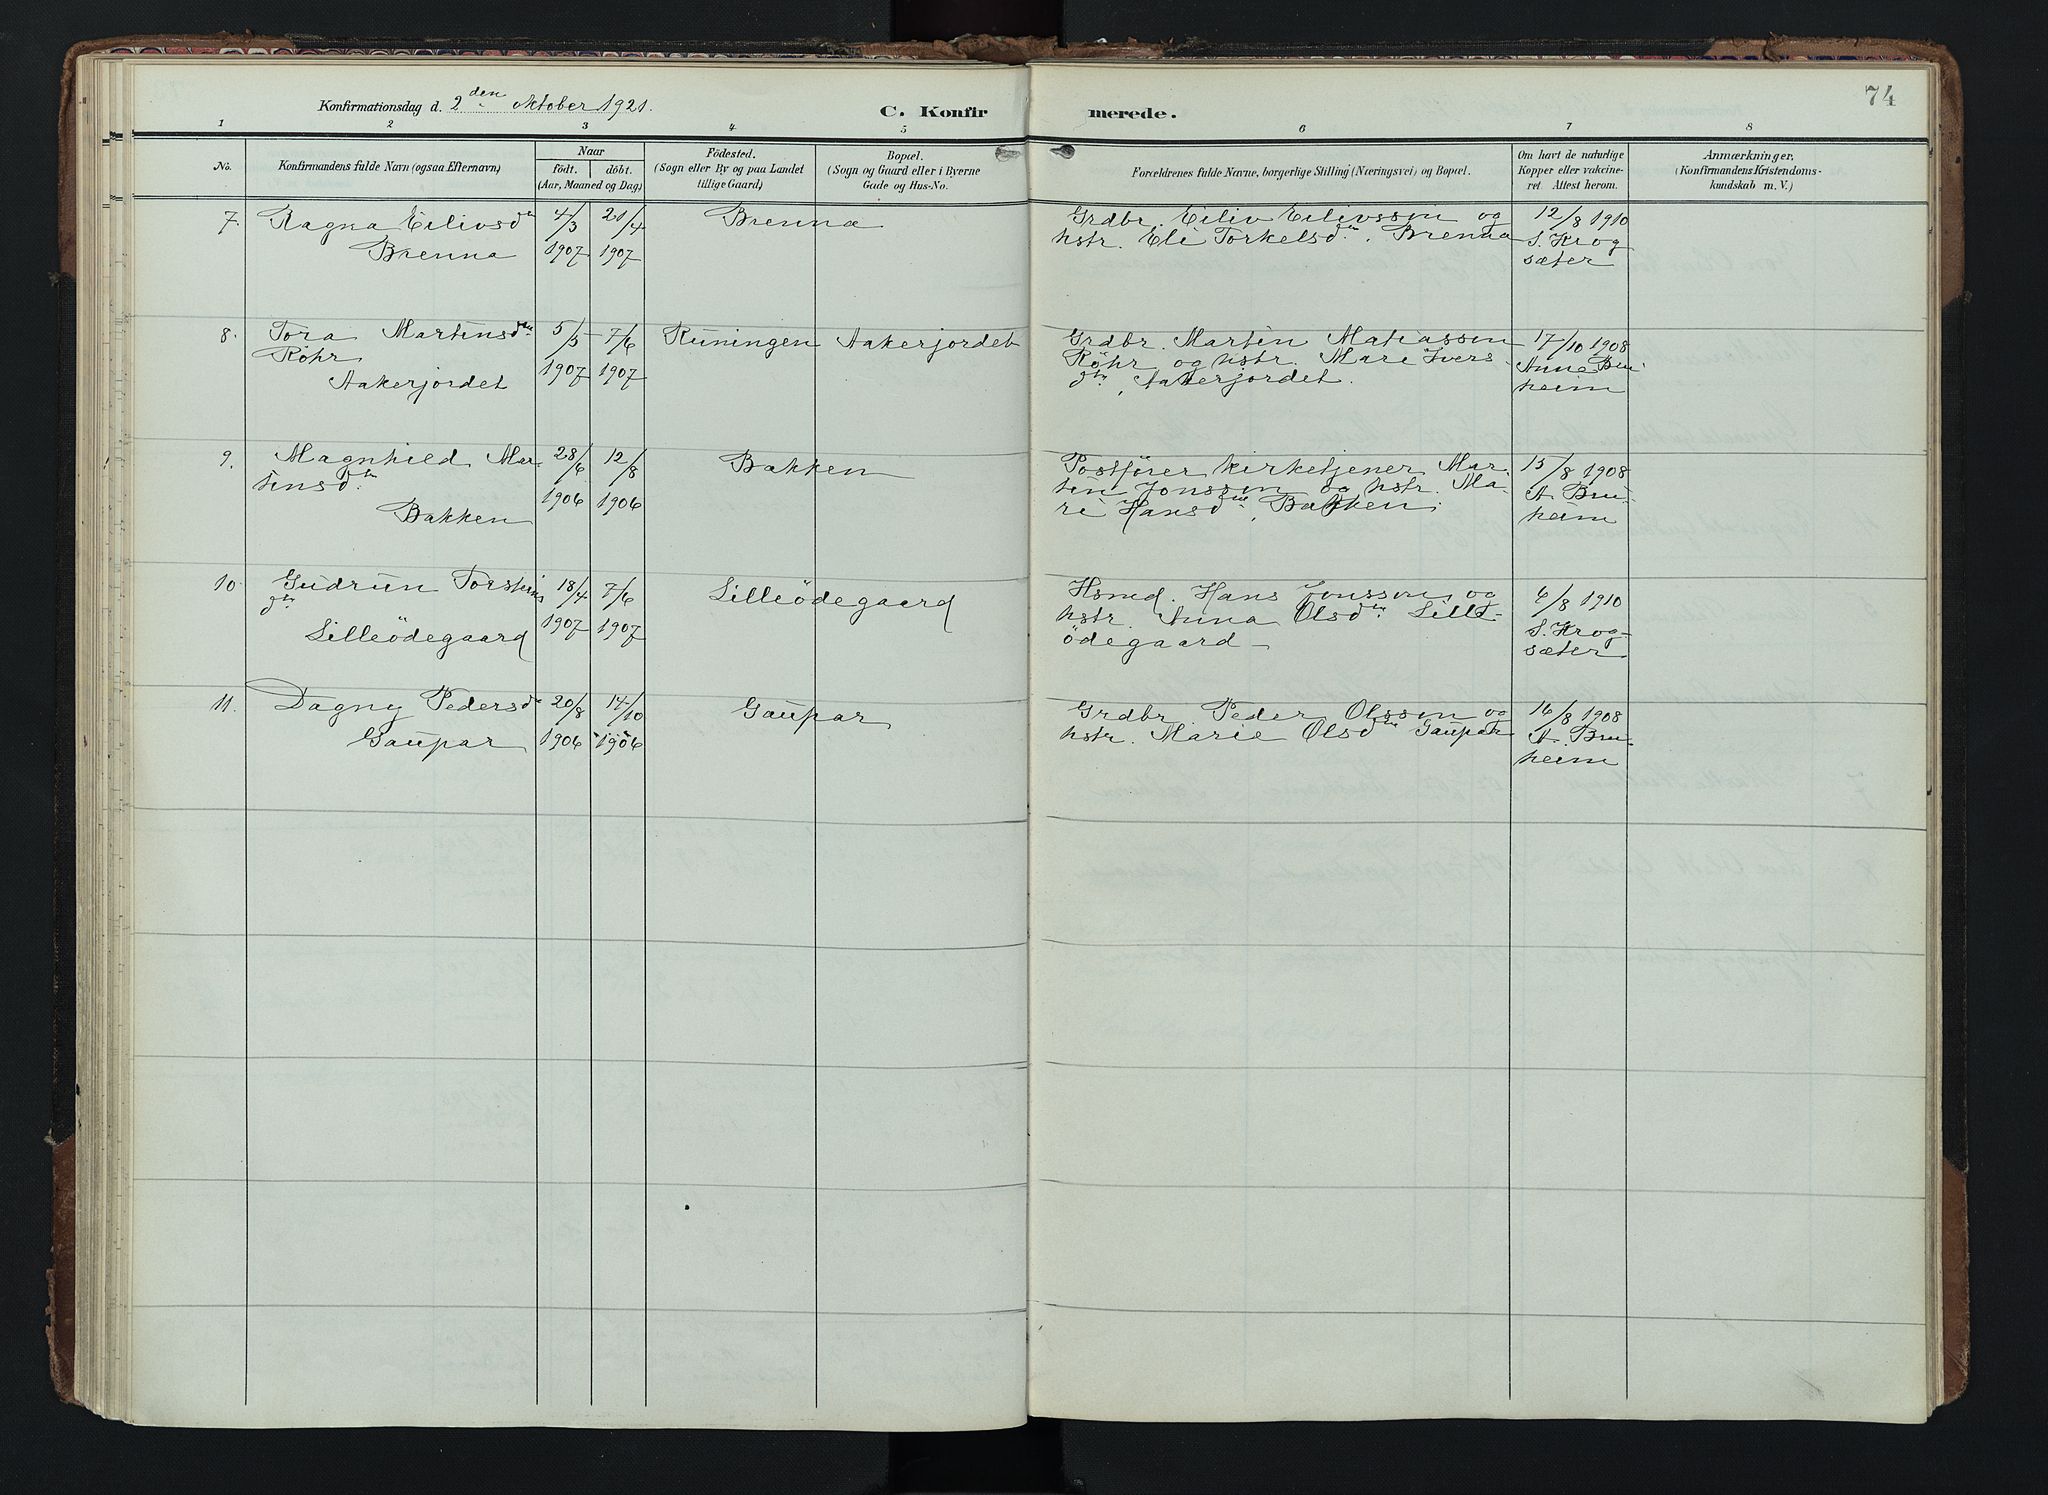 74
Konfirmationsdag d. 2den oktober 1921.
C. Konfirmerede.
1 2 3 4 5 6 7 8
No.
Konfirmandens fulde Navn (ogsaa Efternavn)
Naar
födt. döbt.
(Aar, Maaned og Dag)
Födested.
(Sogn eller By og paa Landet
tillige Gaard)
Bopæl.
(Sogn og Gaard eller i Byerne
Gade og Hus-No.
Forældrenes fulde Navne, borgerlige Stilling (Næringsvei) og Bopæl.
Om havt de naturlige
Kopper eller vakcine-
ret Attest herom.
Anmærkninger,
(Konfirmandens Kristendoms-
kundskab m. V.)
7. Ragna Eilivsdtr
Brenna
4/3 1907
21/4 1907
Brenna
Grdbr. Eiliv Eilivssön og
hstr. Eli Torkelsdtr. Brenna
12/8 1910
S. Krog
sæter
8. Tora Martinsdtr
Röhr
Aakerjordet
5/5 1907
7/6 1907
Runingen Aakerjordet
Grdbr. Martin Matiassön
Röhr og hstr. Mari Ivers-
dtr, Aakerjordet.
17/10 1908
Anna Bru-
heim
9. Magnhild Mar-
tinsdtr
Bakken
28/6 1906
12/8 1906
Bakken
Postförer kirketjener Mar-
tin Jonssön og hstr. Ma-
ri Hansdtr, Bakken.
15/8 1908
A. Bru-
heim
10. Gudrun Torsteins
dtr.
Lilleödegaard
18/4 1907
7/6 1907
Lilleödegaard
Hsmd. Hans Jonssön og
hstr. Anna Olsdtr Lille-
ödegaard
6/8 1910
S. Krog-
sæter
11. Dagny Pedersdtr
Gaupar
20/8 1906
14/10 1906
Gaupar
Grdbr. Peder Olssön og
hstr. Marie Olsdtr Gaupar
16/8 1908
A. Bru-
heim